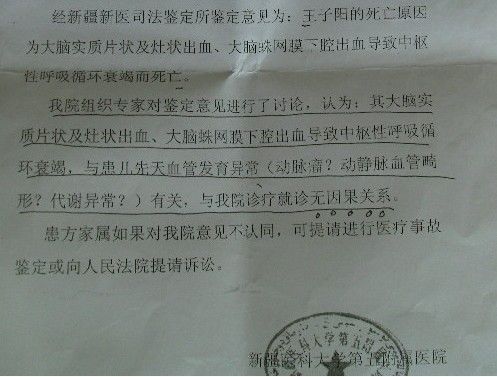 经新疆新医司法鉴定所鉴定意见为：王子阳的死亡原因
为大脑实质片状及灶状出血、大脑蛛网膜下腔出血导致中枢
性呼吸循环衰竭而死亡。
我院组织专家对鉴定意见进行了讨论，认为：其大脑实
质片状及灶状出血、大脑蛛网膜下腔出血导致中枢性呼吸循
环衰竭，与患儿先天血管发育异常（动脉瘤？动静脉血管畸
形？代谢异常？）有关，与我院诊疗就诊无因果关系。
患方家属如果对我院意见不认同，可提请进行医疗事故
鉴定或向人民法院提请诉讼。
医科大学第五附
新疆医科大学第五附属医院